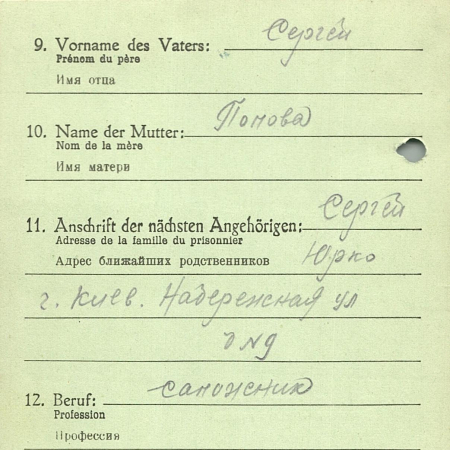 9. Vorname des Vaters: Сергей
Prénom du père
Имя отца
10. Name der Mutter: Попова
Nom de la mère
Имя матери
11. Anschrift der nächsten Angehörigen: Сергей
Adresse de la famille du prisonnier
Адрес ближайших родственников Юрко
г. Киев. Надережная ул
д N9
12. Beruf: сапожник
Profession
Профессия